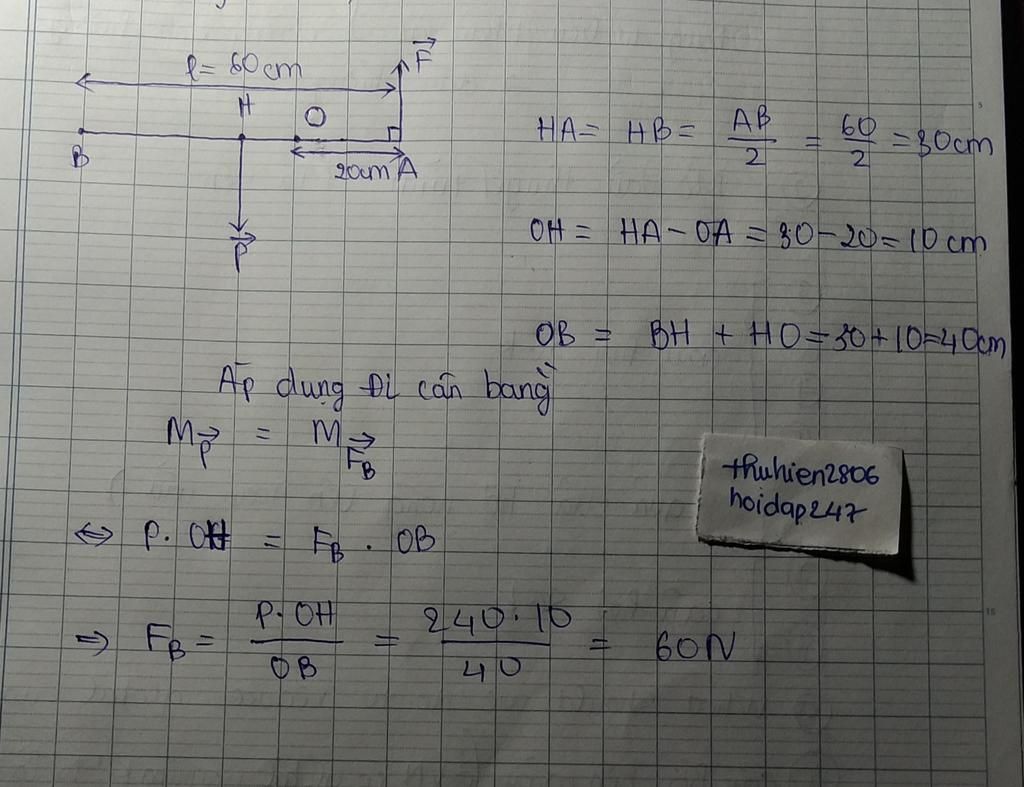 l = 60cm
F
H
O
B
20cm A
P
HA = HB = AB/2 = 60/2 = 30cm
OH = HA - OA = 30 - 20 = 10 cm
OB = BH + HO = 30 + 10 = 40cm
Áp dụng Đl cân bằng
M_P = M_F_B
⇔ P. OH = F_B . OB
⇒ F_B = P.OH/OB = 240.10/40 = 60N
thuhien2806
hoidap247